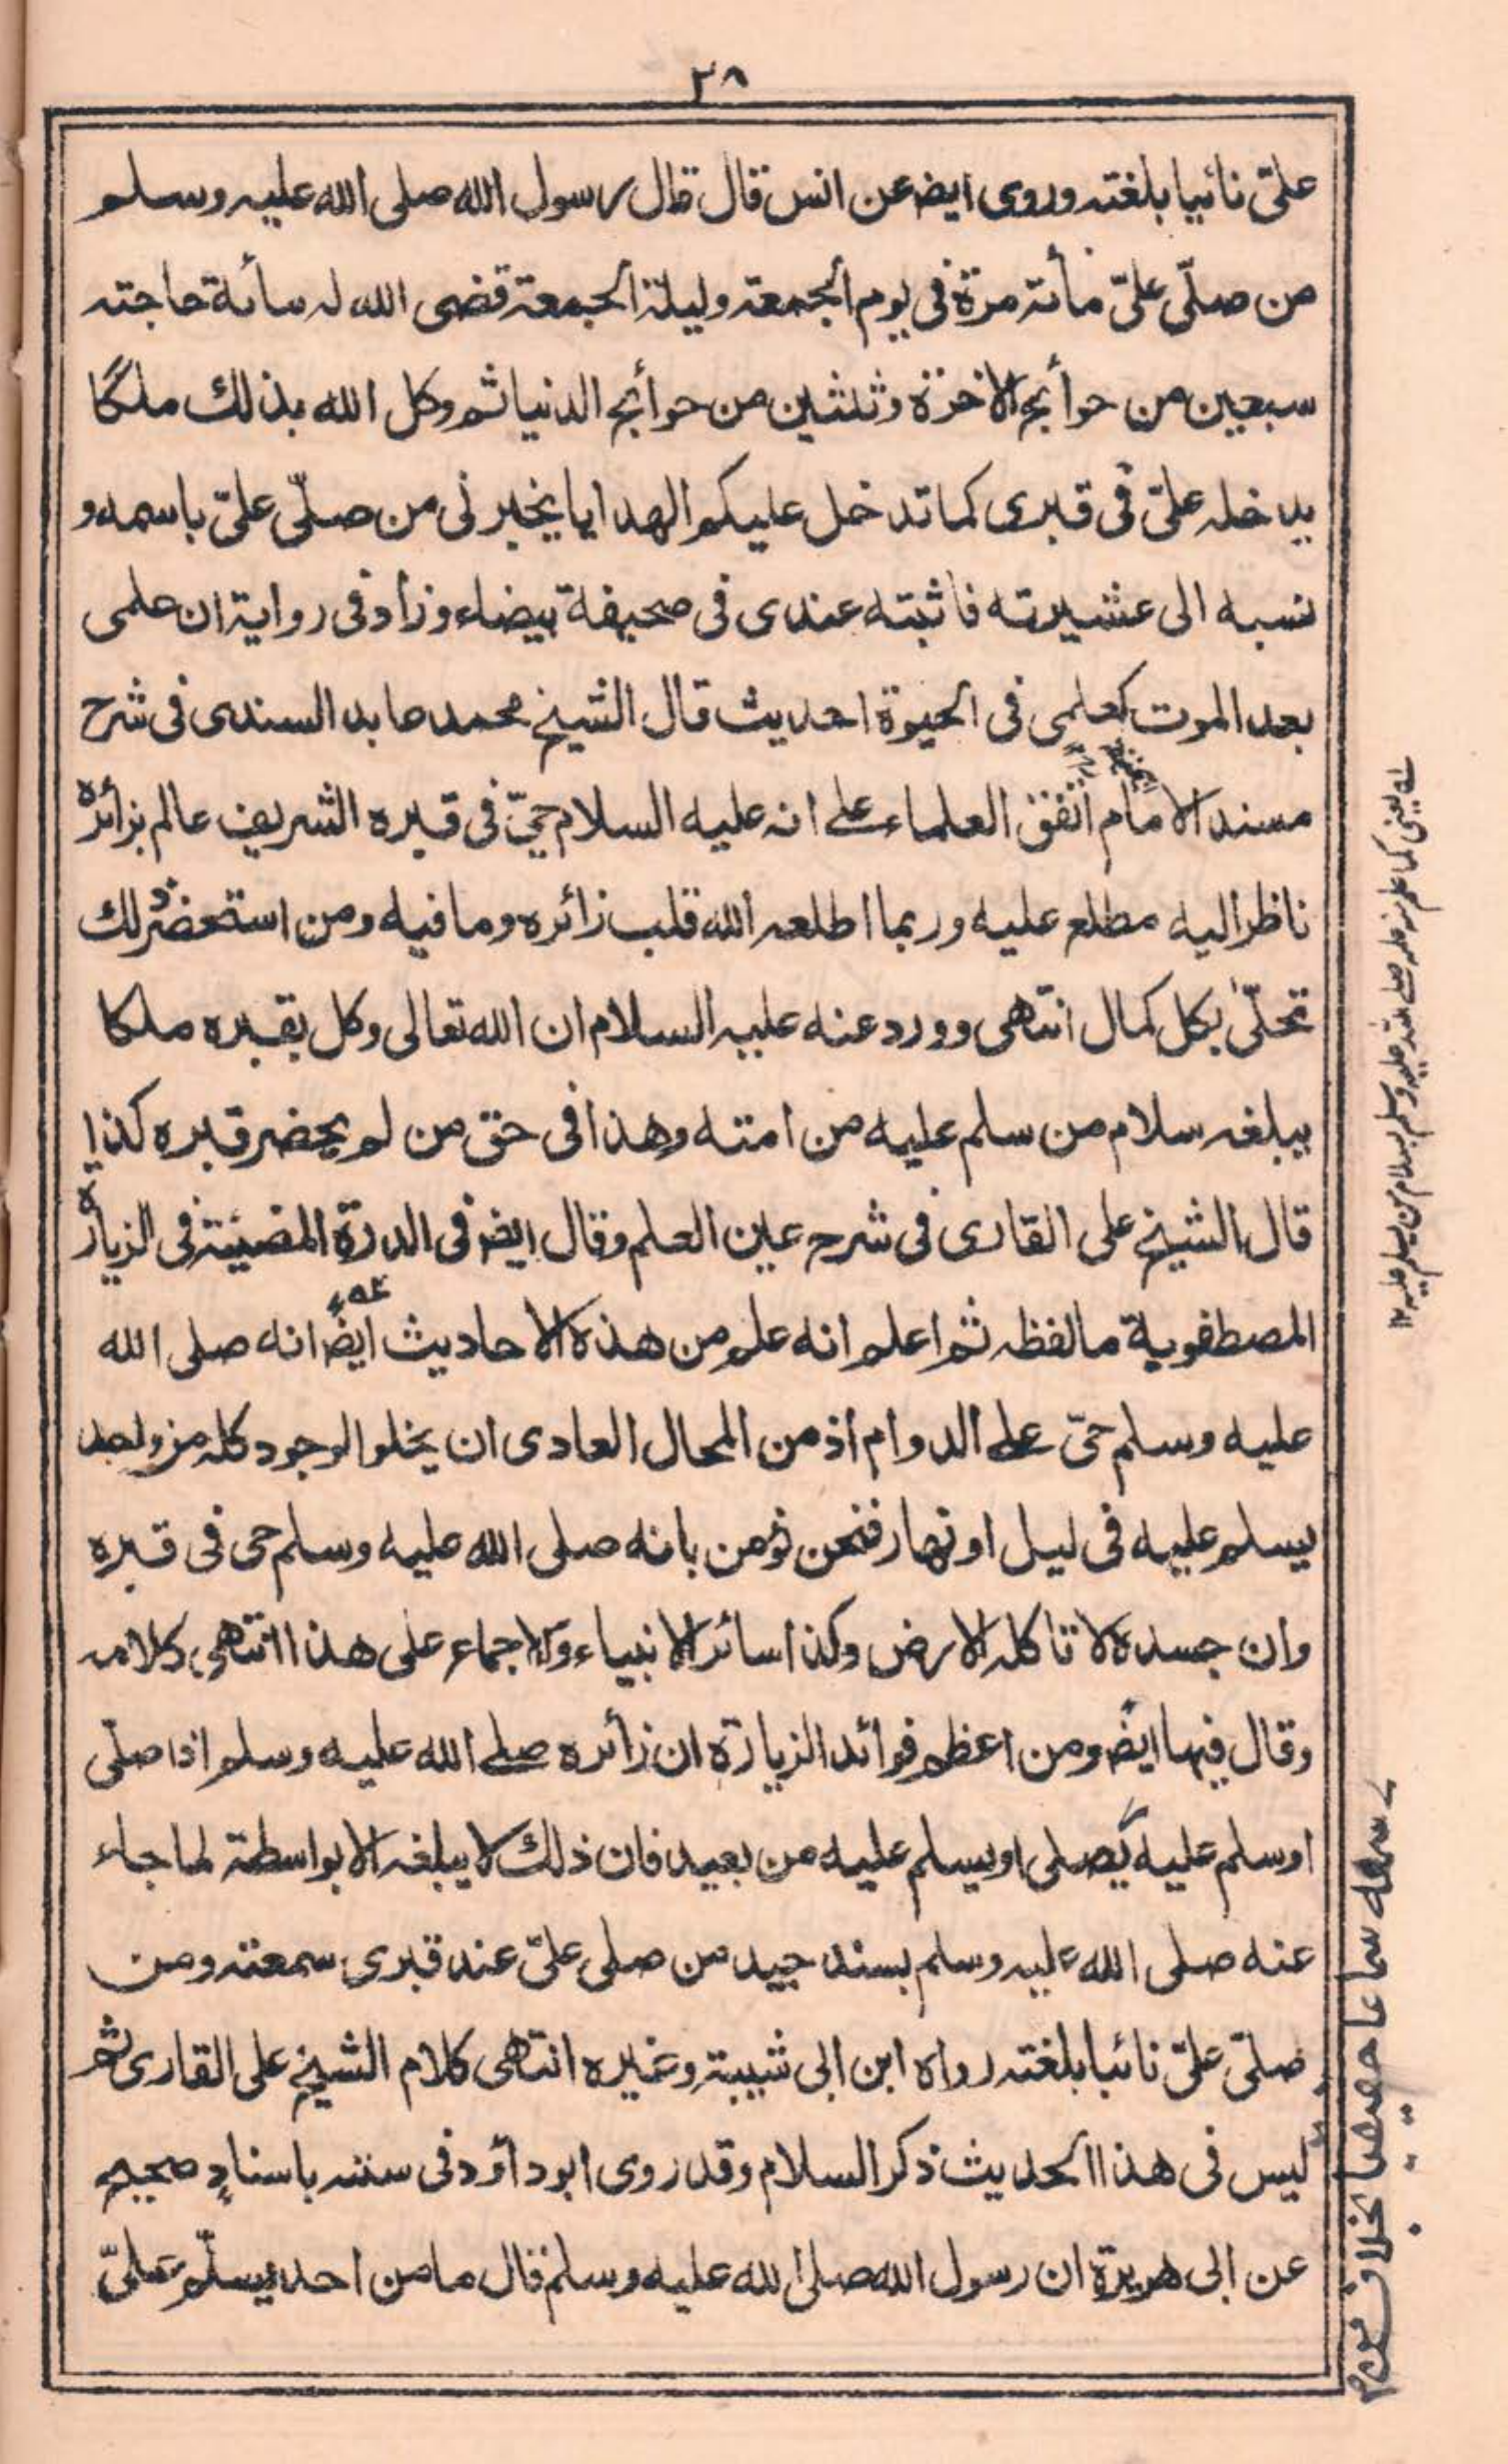 ٣٨
علىّ نائيا بلغته وروى ايضا عن انس قال قال رسول الله صلى الله عليه وسلم
من صلّى علىّ مأته مرة فى يوم الجمعة وليلة الجمعة قضى الله له سائة حاجته
سبعين من حوائج الاخرة وثلثين من حوائج الدنيا ثم وكل الله بذلك ملكًا
يدخله علىّ فى قبرى كما تدخل عليكم الهدايا يخبرنى من صلّى علىّ باسمه و
نسبه الى عشيرته فاثبته عندى فى صحيفة بيضاء وزاد فى رواية ان علمى
بعد الموت كعلمى فى الحيوة احديث قال الشيخ محمد عابد السندى فى شرح
مسند الامام اتفق العلماء على انه عليه السلام حىّ فى قبره الشريف عالم بزائره
ناظر اليه مطلع عليه وربما اطلعه الله قلب زائره وما فيه ومن استحضر ذلك
تحلّى بكل كمال انتهى وورد عنه عليه السلام ان الله تعالى وكل بقبره ملكا
يبلغه سلام من سلم عليه من امته وهذا فى حق من لم يحضر قبره كذا
قال الشيخ على القارى فى شرح عين العلم وقال ايضا فى الدرة المضيئة فى الزيارة
المصطفوية ما لفظه ثم اعلم انه علم من هذه الاحاديث ايضا انه صلى الله
عليه وسلم حىّ على الدوام اذ من المحال العادى ان يخلو الوجود كله من واحد
يسلم عليه فى ليل او نهار فنحن نؤمن بانه صلى الله عليه وسلم حى فى قبره
وان جسده لا تاكله الارض وكذا سائر الانبياء والاجماع على هذا انتهى كلامه
وقال فيها ايضا ومن اعظم فوائد الزيارة ان زائره صلے الله عليه وسلم اذا صلّى
او سلم عليه يصلى او يسلم عليه من بعيد فان ذلك لا يبلغه الا بواسطة لما جاء
عنه صلى الله عليه وسلم بسند جيد من صلى علىّ عند قبرى سمعته ومن
صلّى علىّ نائبا بلغته رواه ابن ابى شيبة وغيره انتهى كلام الشيخ على القارى ثم
ليس فى هذا الحديث ذكر السلام وقد روى ابو داؤد فى سننه باسنادٍ صحيح
عن ابى هريرة ان رسول الله صلى الله عليه وسلم قال ما من احد يسلّم علىّ
سمعه سماعا حقيقيا بخلاف من